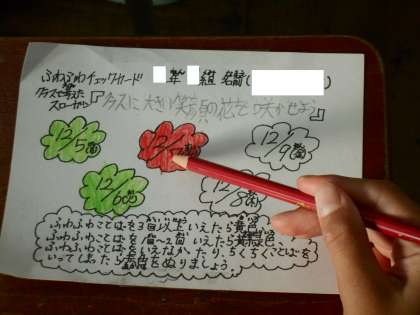 ふわふわチェックカード 年 組 名前(
クラスで考えた
スローガン『クラスに大きい笑顔の花を咲かせよう』
12/5 12/7 12/9
12/6 12/8
ふわふわことばを3回以上いえたら黄色
ふわふわことばを1回〜2回いえたら黄緑色
ふわふわことばをいえなかったり、ちくちくことばを
いってしまったら赤色をぬりましょう。